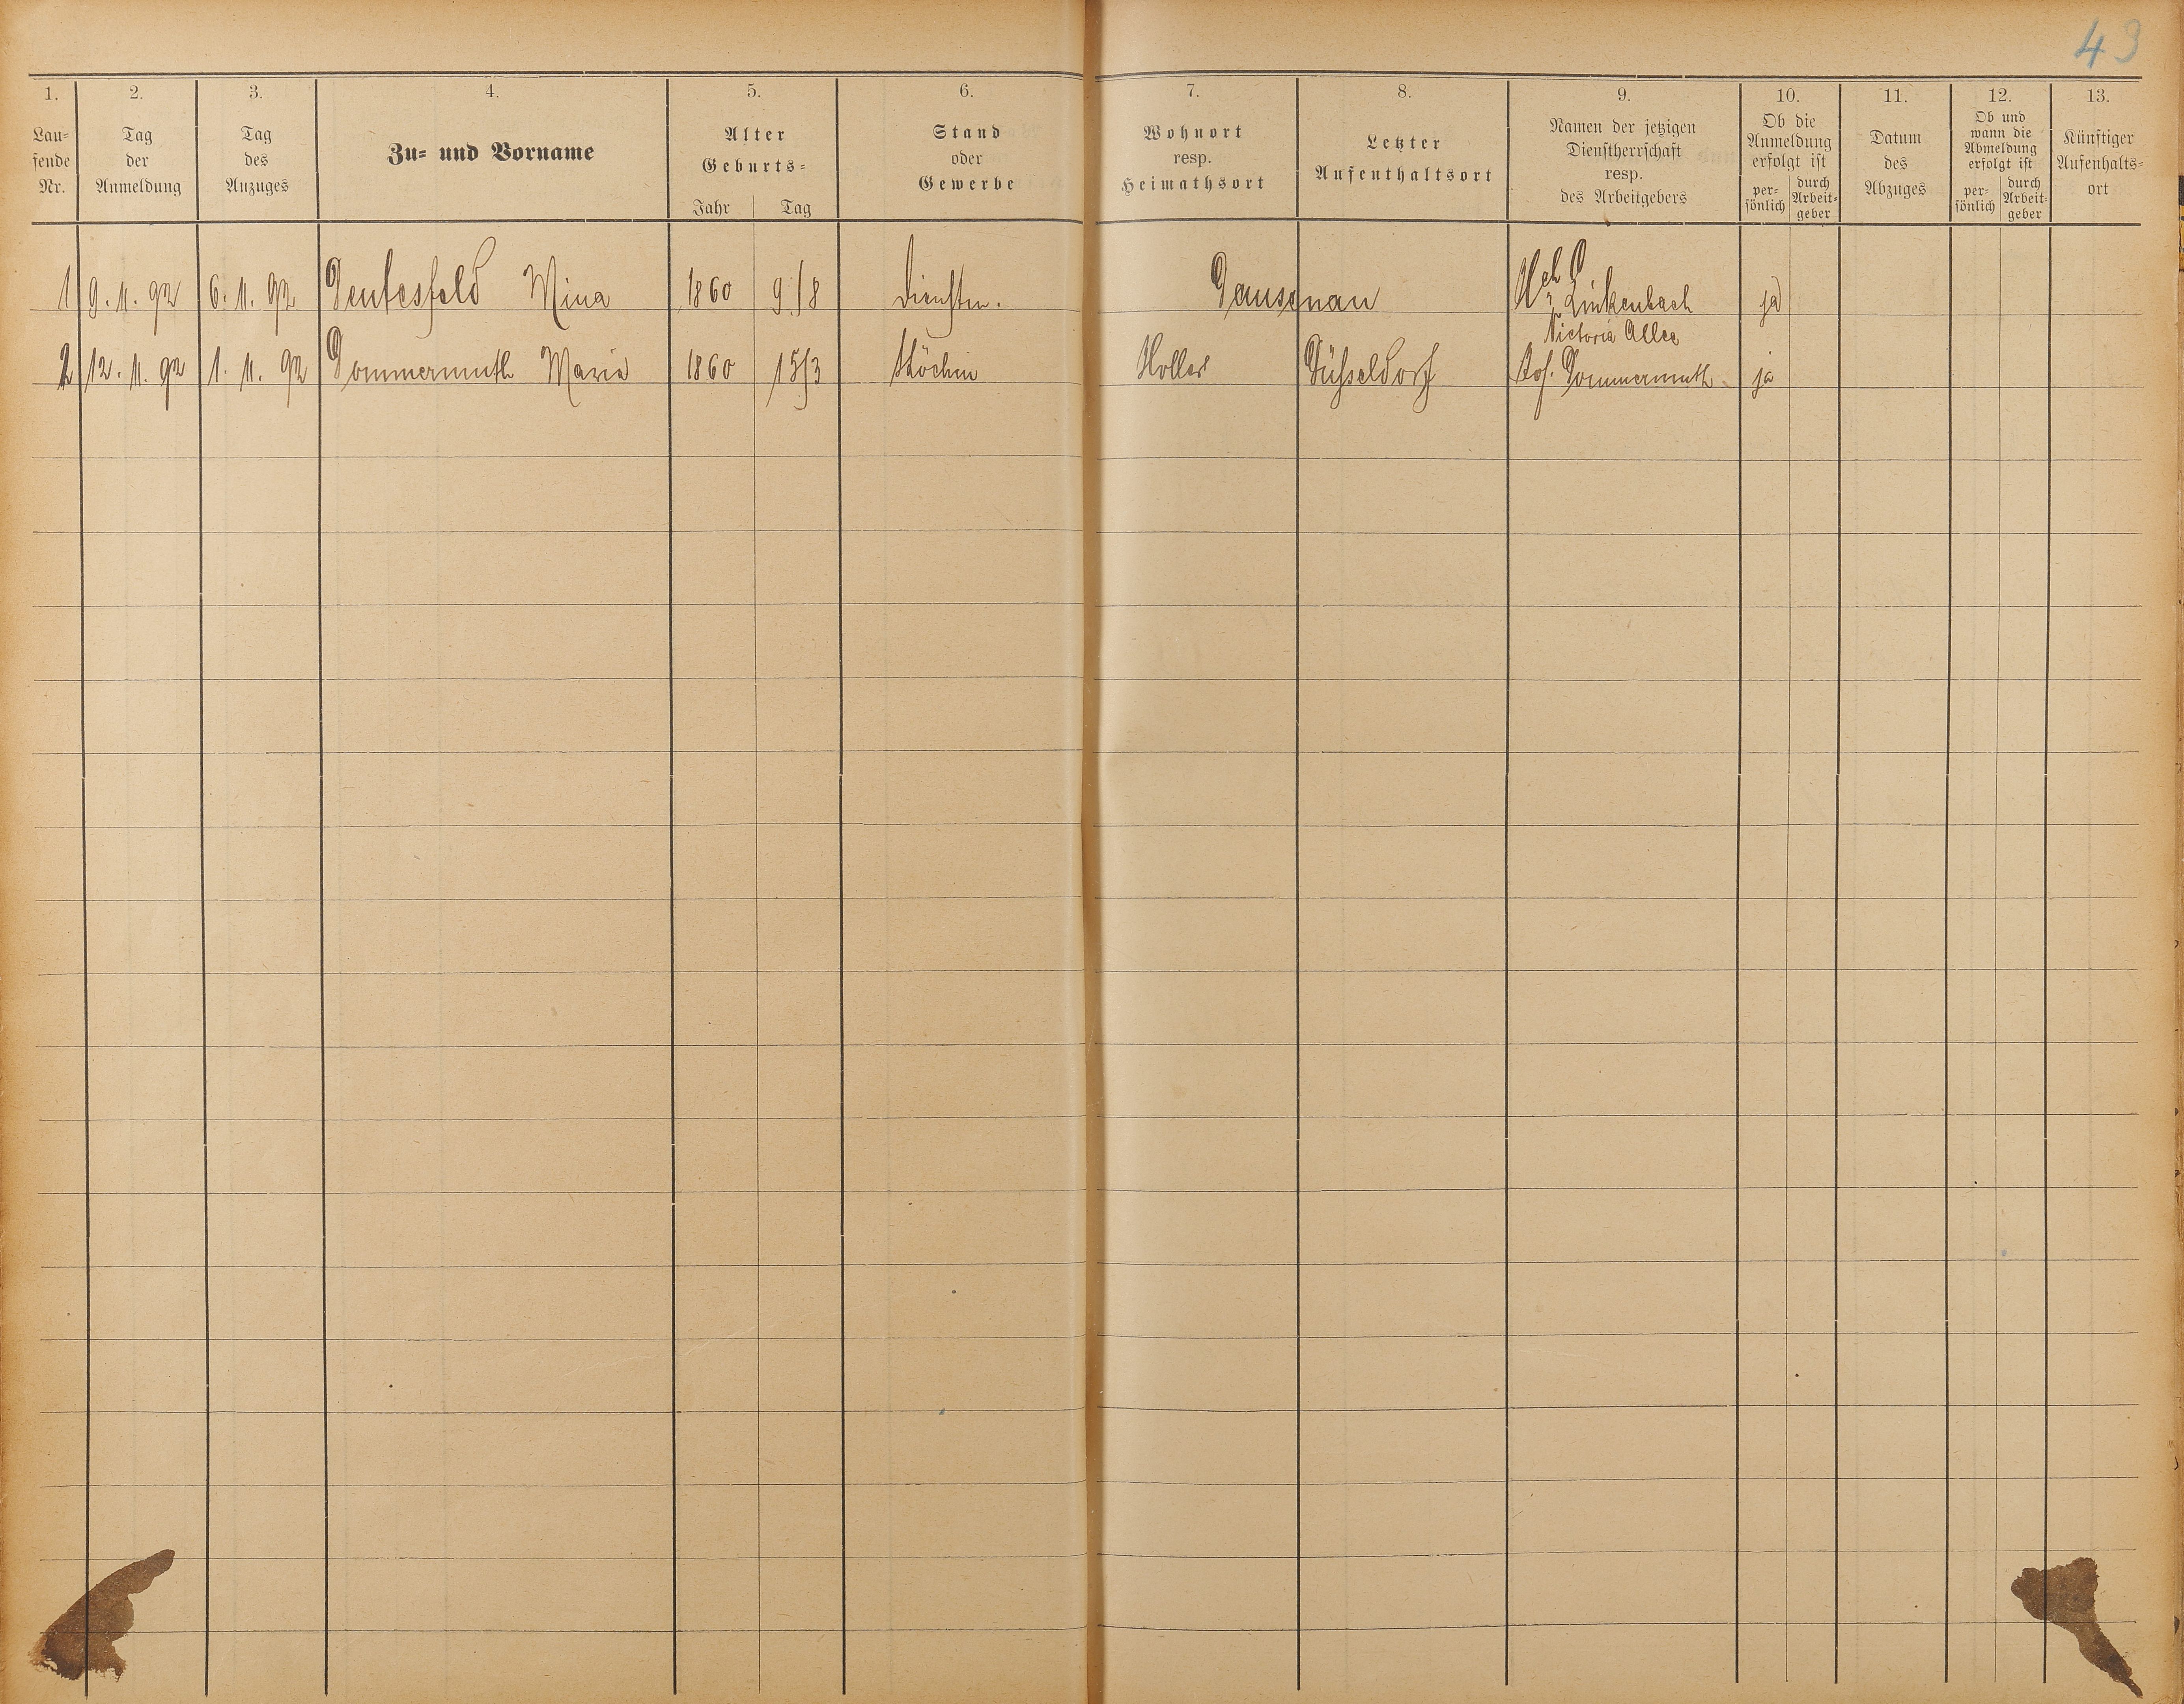 43
1. 2. 3. 4. 5. 6. 7. 8. 9. 10. 11. 12. 13.
Lau=
fende
Nr.
Tag
der
Anmeldung
Tag
des
Anzuges
Zu= und Vorname
Alter
Geburts=
Jahr Tag
Stand
oder
Gewerbe
Wohnort
resp.
Heimathsort
Letzter
Aufenthaltsort
Namen der jetzigen
Dienstherrschaft
resp.
des Arbeitgebers
Ob die
Anmeldung
erfolgt ist
per=
sönlich
durch
Arbeit=
geber
Datum
des
Abzuges
Ob und
wann die
Abmeldung
erfolgt ist
per=
sönlich
durch
Arbeit=
geber
Künftiger
Aufenhalts=
ort
1 9. 11. 92 6. 11. 92 Dentesfeld Mina 1860 9/8 Dienstm. Dausenau Linkenbach ja
Victoria Allee
2 12. 11. 92 1. 11. 92 Dommermuth Maria 1860 15/3 Köchin Holler Düsseldorf Jos. Dommermuth ja